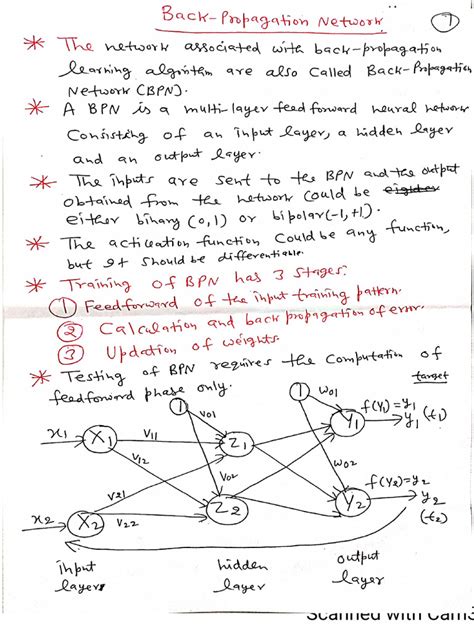 Back-Propagation Network.
1
* The network associated with back-propagation
learning algorithm are also called Back-Propagation
Network (BPN).
* A BPN is a multi-layer feed forward neural network
Consisting of an input layer, a hidden layer
and an output layer.
* The inputs are sent to the BPN and the output
obtained from the network could be
either binary (0,1) or bipolar (-1,+1).
* The activation function could be any function,
but it should be differentiable.
* Training of BPN has 3 stages:
① Feedforward of the input training pattern.
② Calculation and back propagation of error.
③ Updation of weights.
* Testing of BPN requires the computation of
feedforward phase only.
target
1 v01 1 w01 f(y1)=y1
x1 X1 v11 Z1 Y1 y1 (t1)
v12 v02 w02
v21 f(y2)=y2
x2 X2 v22 Z2 Y2 y2
(t2)
input hidden output
layer layer layer
Scanned with Cam